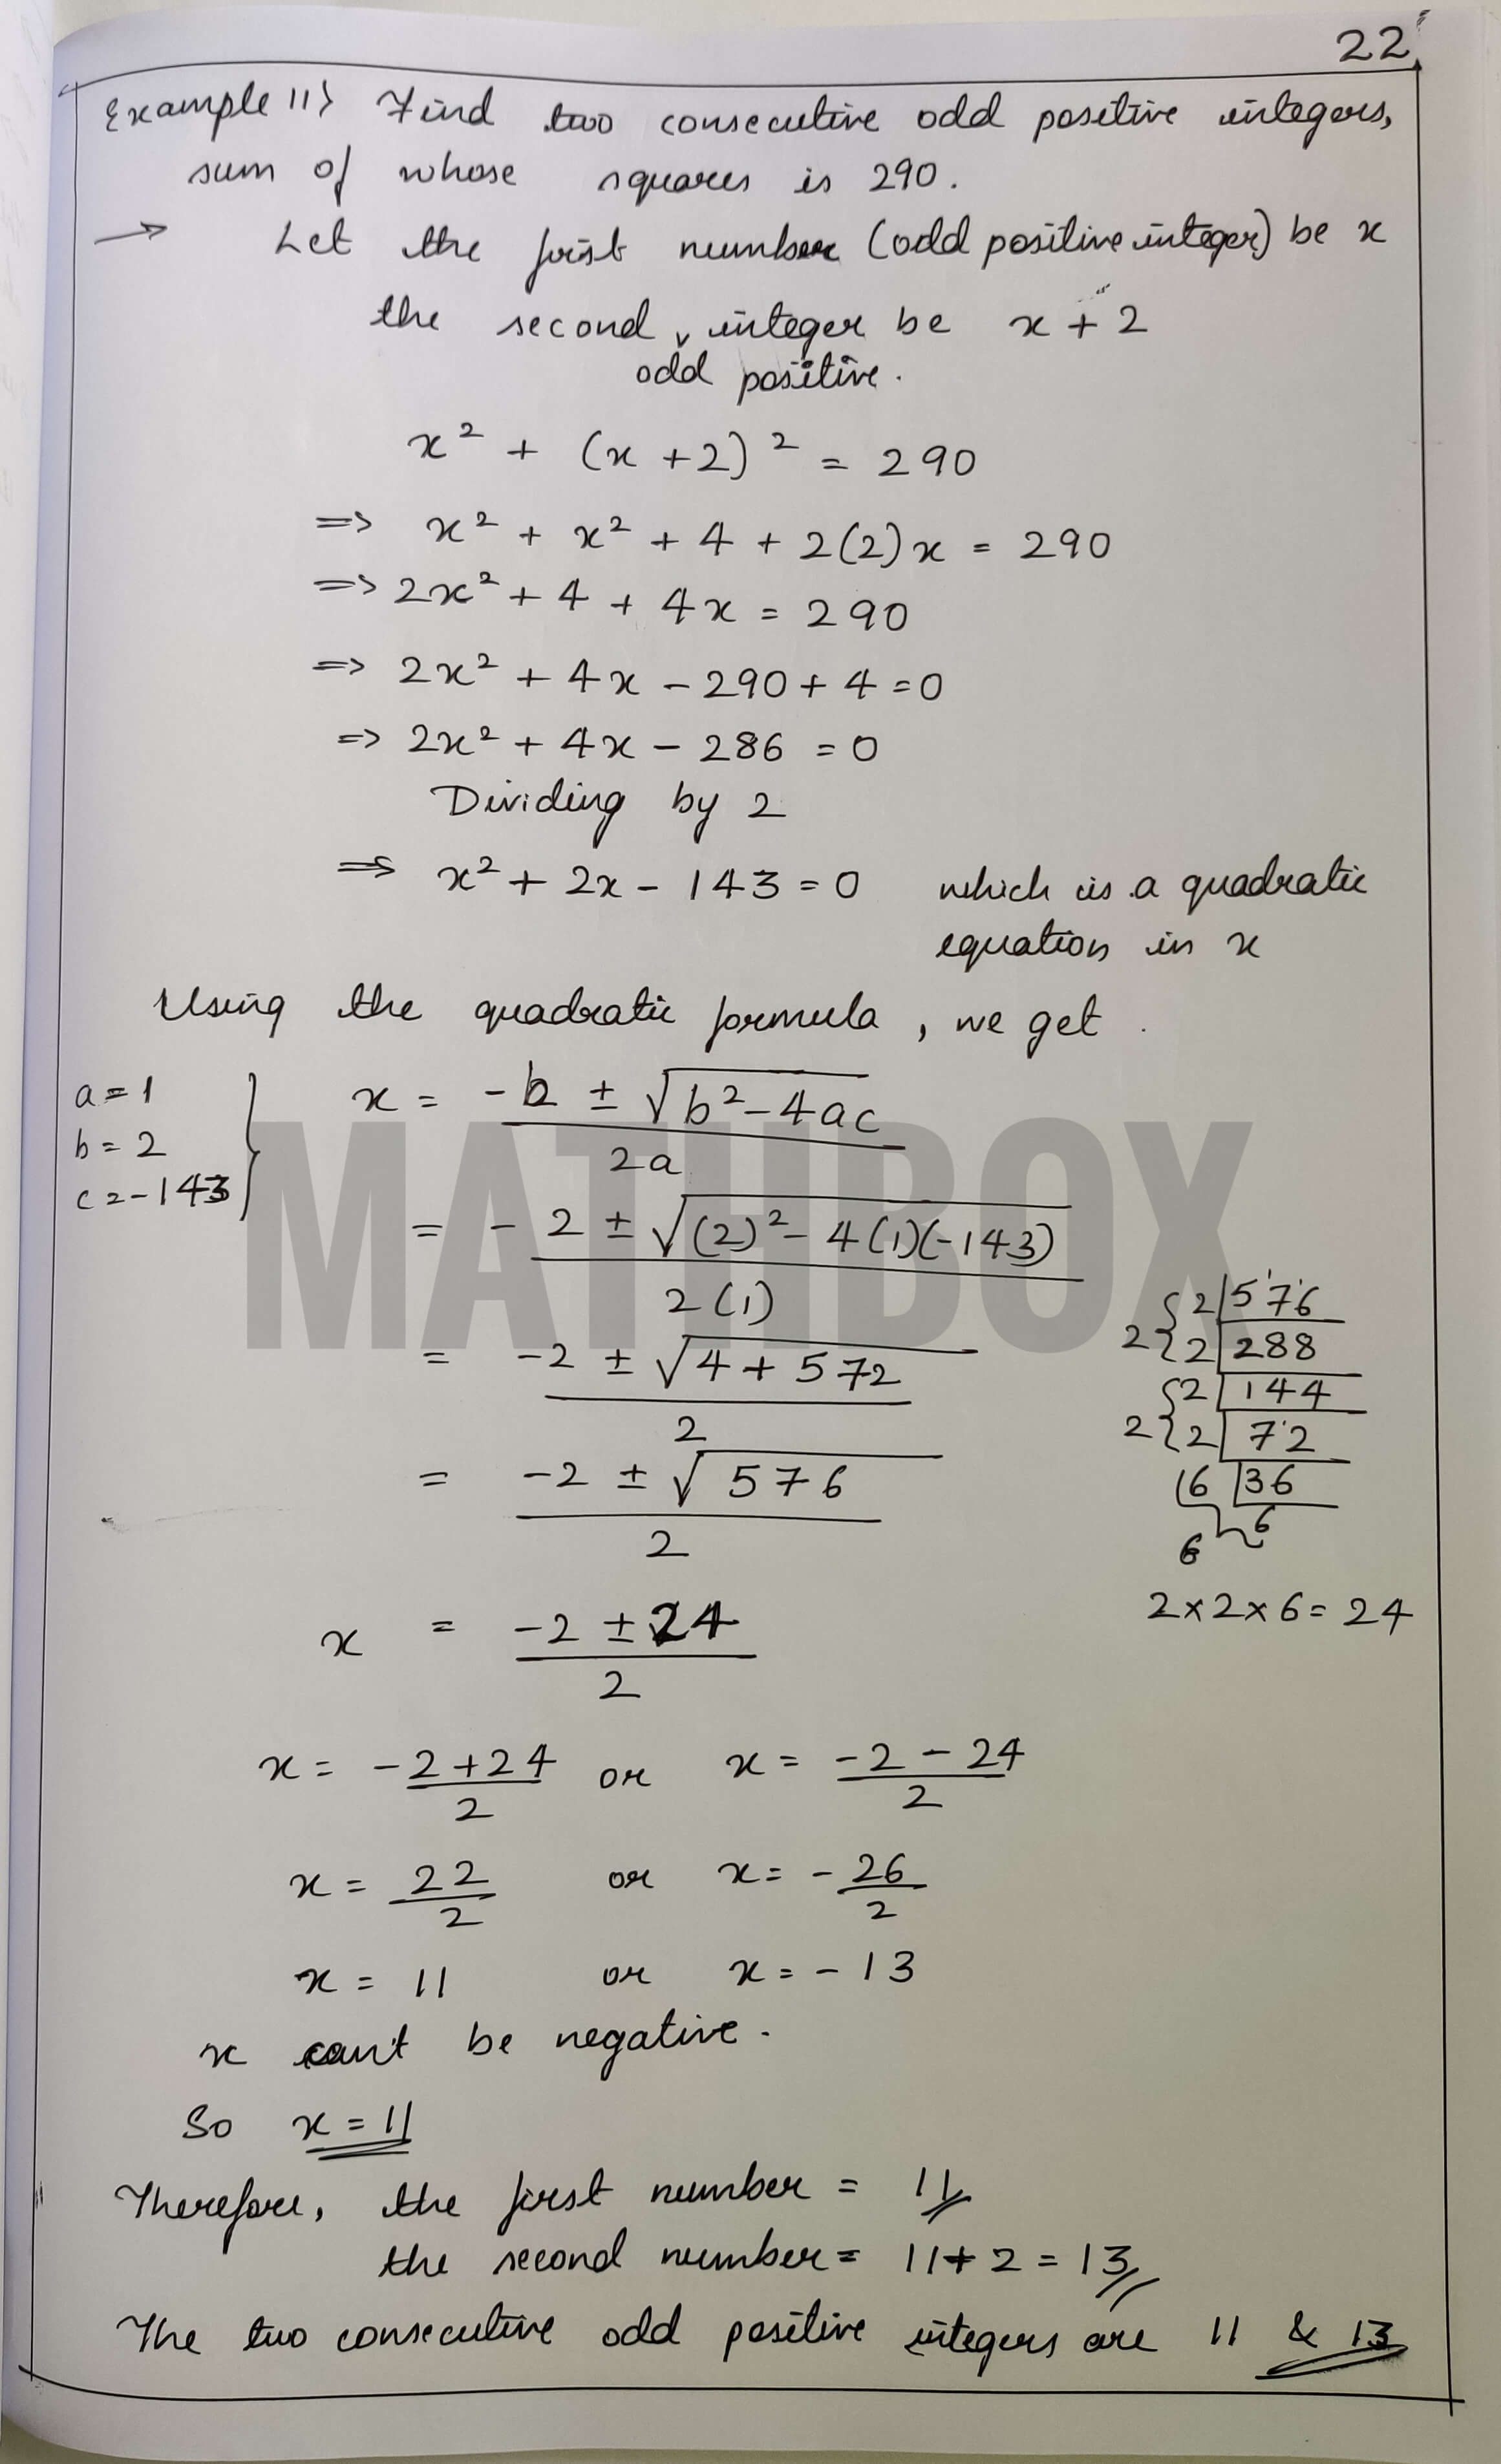 22
Example 11) Find two consecutive odd positive integers,
sum of whose squares is 290.
→ Let the first number (odd positive integer) be x
the second ˅ integer be x + 2
odd positive.
x² + (x + 2)² = 290
=> x² + x² + 4 + 2(2)x = 290
=> 2x² + 4 + 4x = 290
=> 2x² + 4x - 290 + 4 = 0
=> 2x² + 4x - 286 = 0
Dividing by 2
=> x² + 2x - 143 = 0 which is a quadratic
equation in x
Using the quadratic formula, we get.
a = 1
b = 2
c = -143
x = (-b ± √(b² - 4ac)) / 2a
= (-2 ± √((2)² - 4(1)(-143))) / 2(1)
= (-2 ± √(4 + 572)) / 2
= (-2 ± √576) / 2
x = (-2 ± 24) / 2
2 { 2 | 576
2 | 288
2 { 2 | 144
2 | 72
6 | 36
6
6
2 × 2 × 6 = 24
x = (-2 + 24) / 2 or x = (-2 - 24) / 2
x = 22 / 2 or x = -26 / 2
x = 11 or x = -13
x can't be negative.
So x = 11
Therefore, the first number = 11
the second number = 11 + 2 = 13
The two consecutive odd positive integers are 11 & 13
MATHBOX